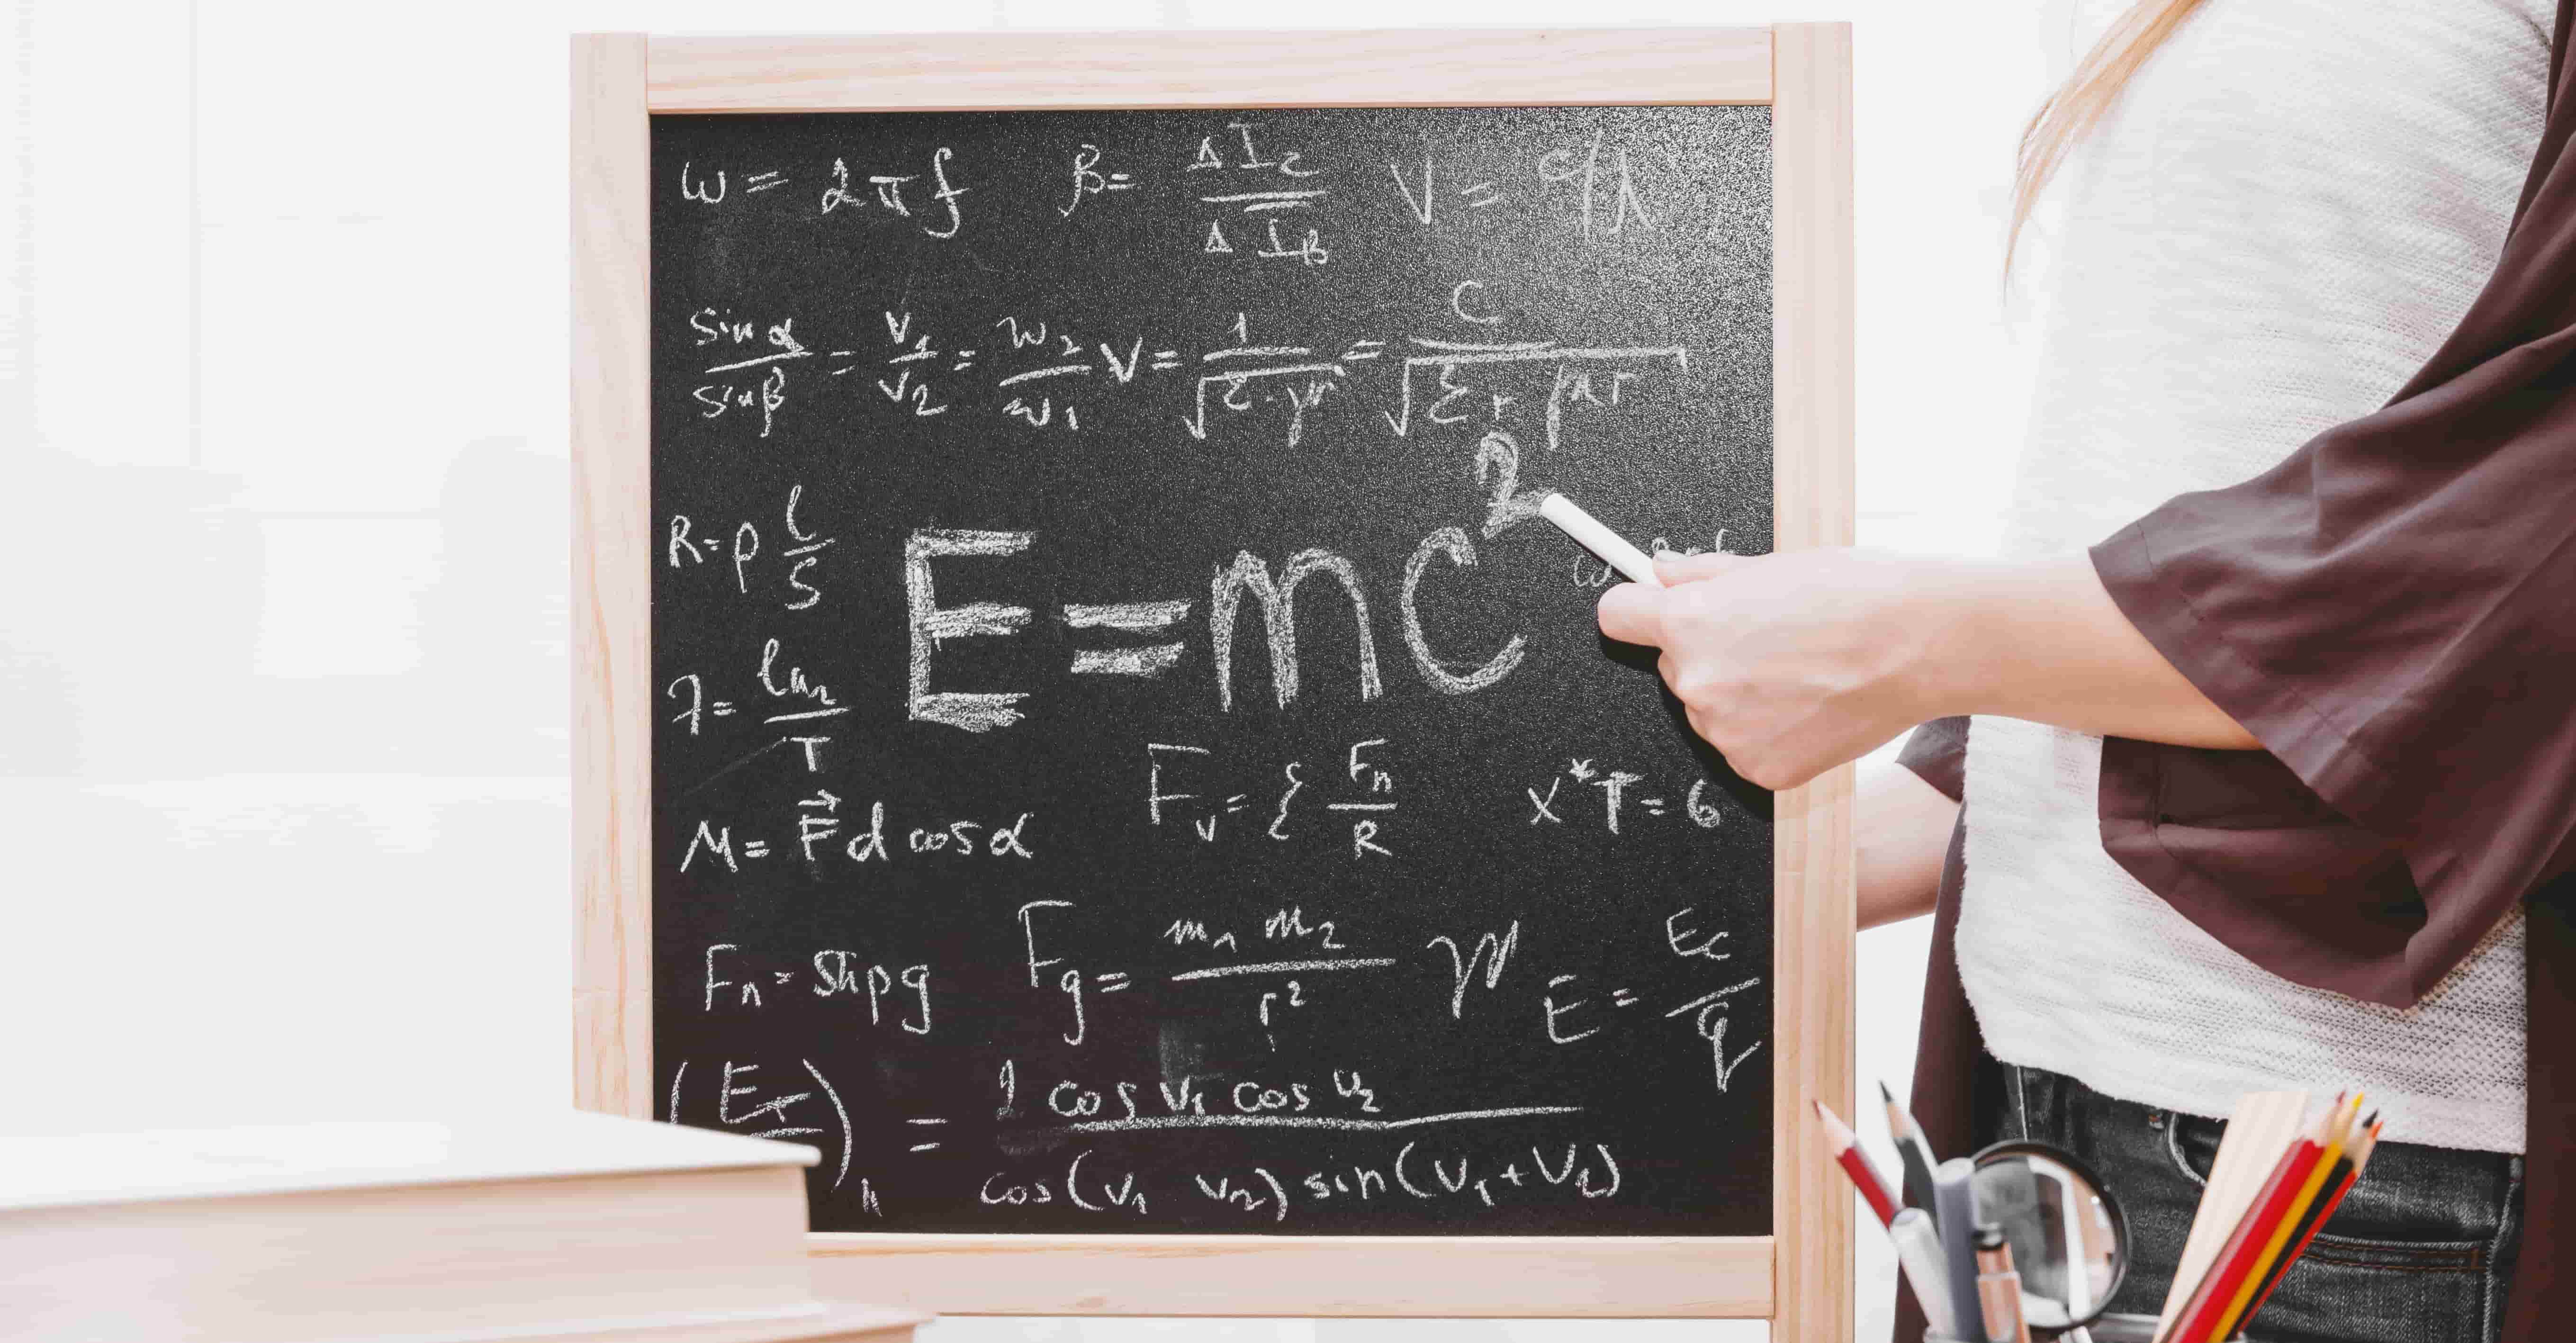 ω = 2πf β = ΔI_C / ΔI_B V = c/λ
sin α / sin β = v₁ / v₂ = w₂ / w₁ V = 1 / √(ε · μ) = c / √(εr μr)
R = ρ l / S
E = mc²
λ = ln₂ / T
M = F⃗ d cos α
F_v = { F_n / R
x*T = 6
F_n = Shρg
F_g = m₁ m₂ / r²
E = E_C / q
= 2 cos v₁ cos v₂ / cos(v₁ v₂) sin(v₁ + v₂)